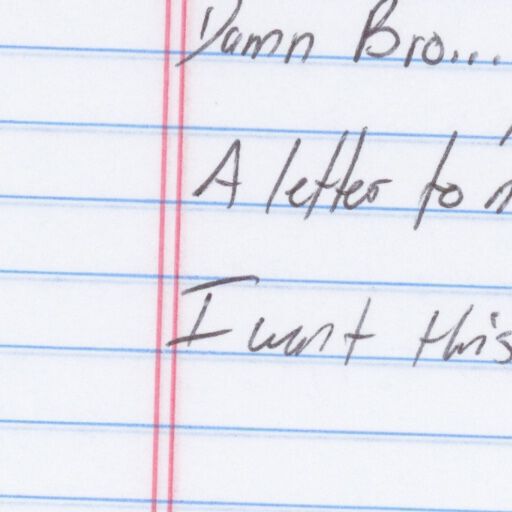 Damn Bro...
A letter to
I want this